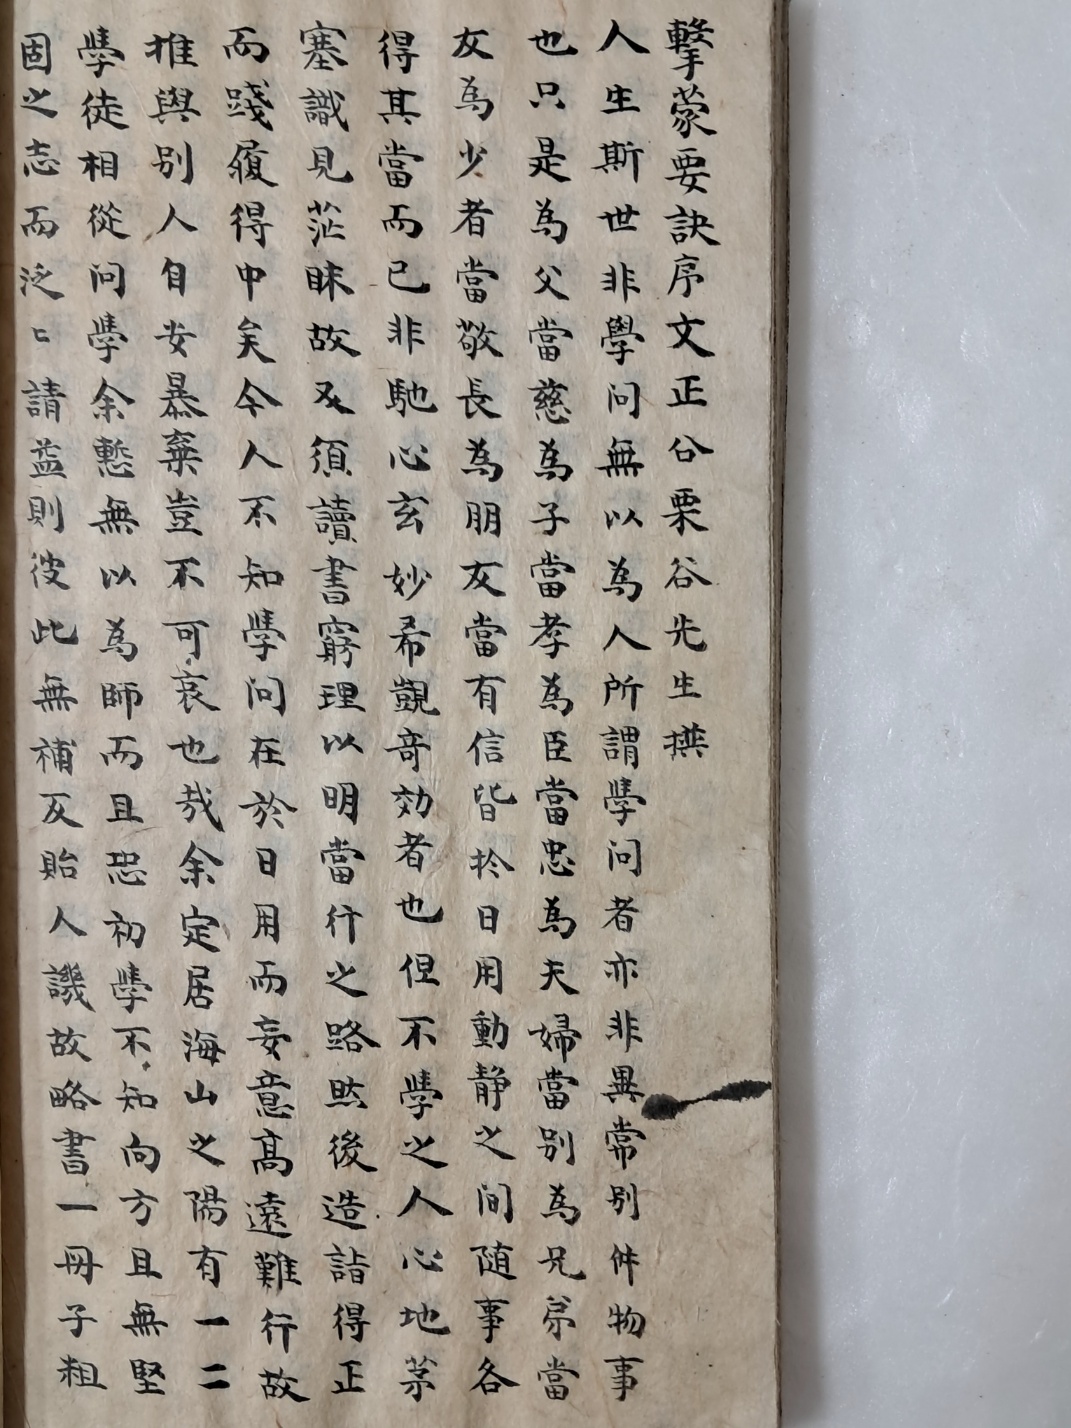 擊蒙要訣序文正公栗谷先生撰
人生斯世非學問無以為人所謂學問者亦非異常別件物事
也只是為父當慈為子當孝為臣當忠為夫婦當別為兄弟當
友為少者當敬長為朋友當有信皆於日用動静之间随事各
得其當而已非馳心玄妙希覬竒効者也但不學之人心地茅
塞識見茫昧故又須讀書窮理以明當行之路然後造詣得正
而踐履得中矣今人不知學问在於日用而妄意高遠難行故
推與別人自安暴棄豈不可哀也哉余定居海山之陽有一二
學徒相從问學余慙無以為師而且恐初學不知向方且無堅
固之志而泛〻請益則彼此無補反貽人譏故略書一冊子粗